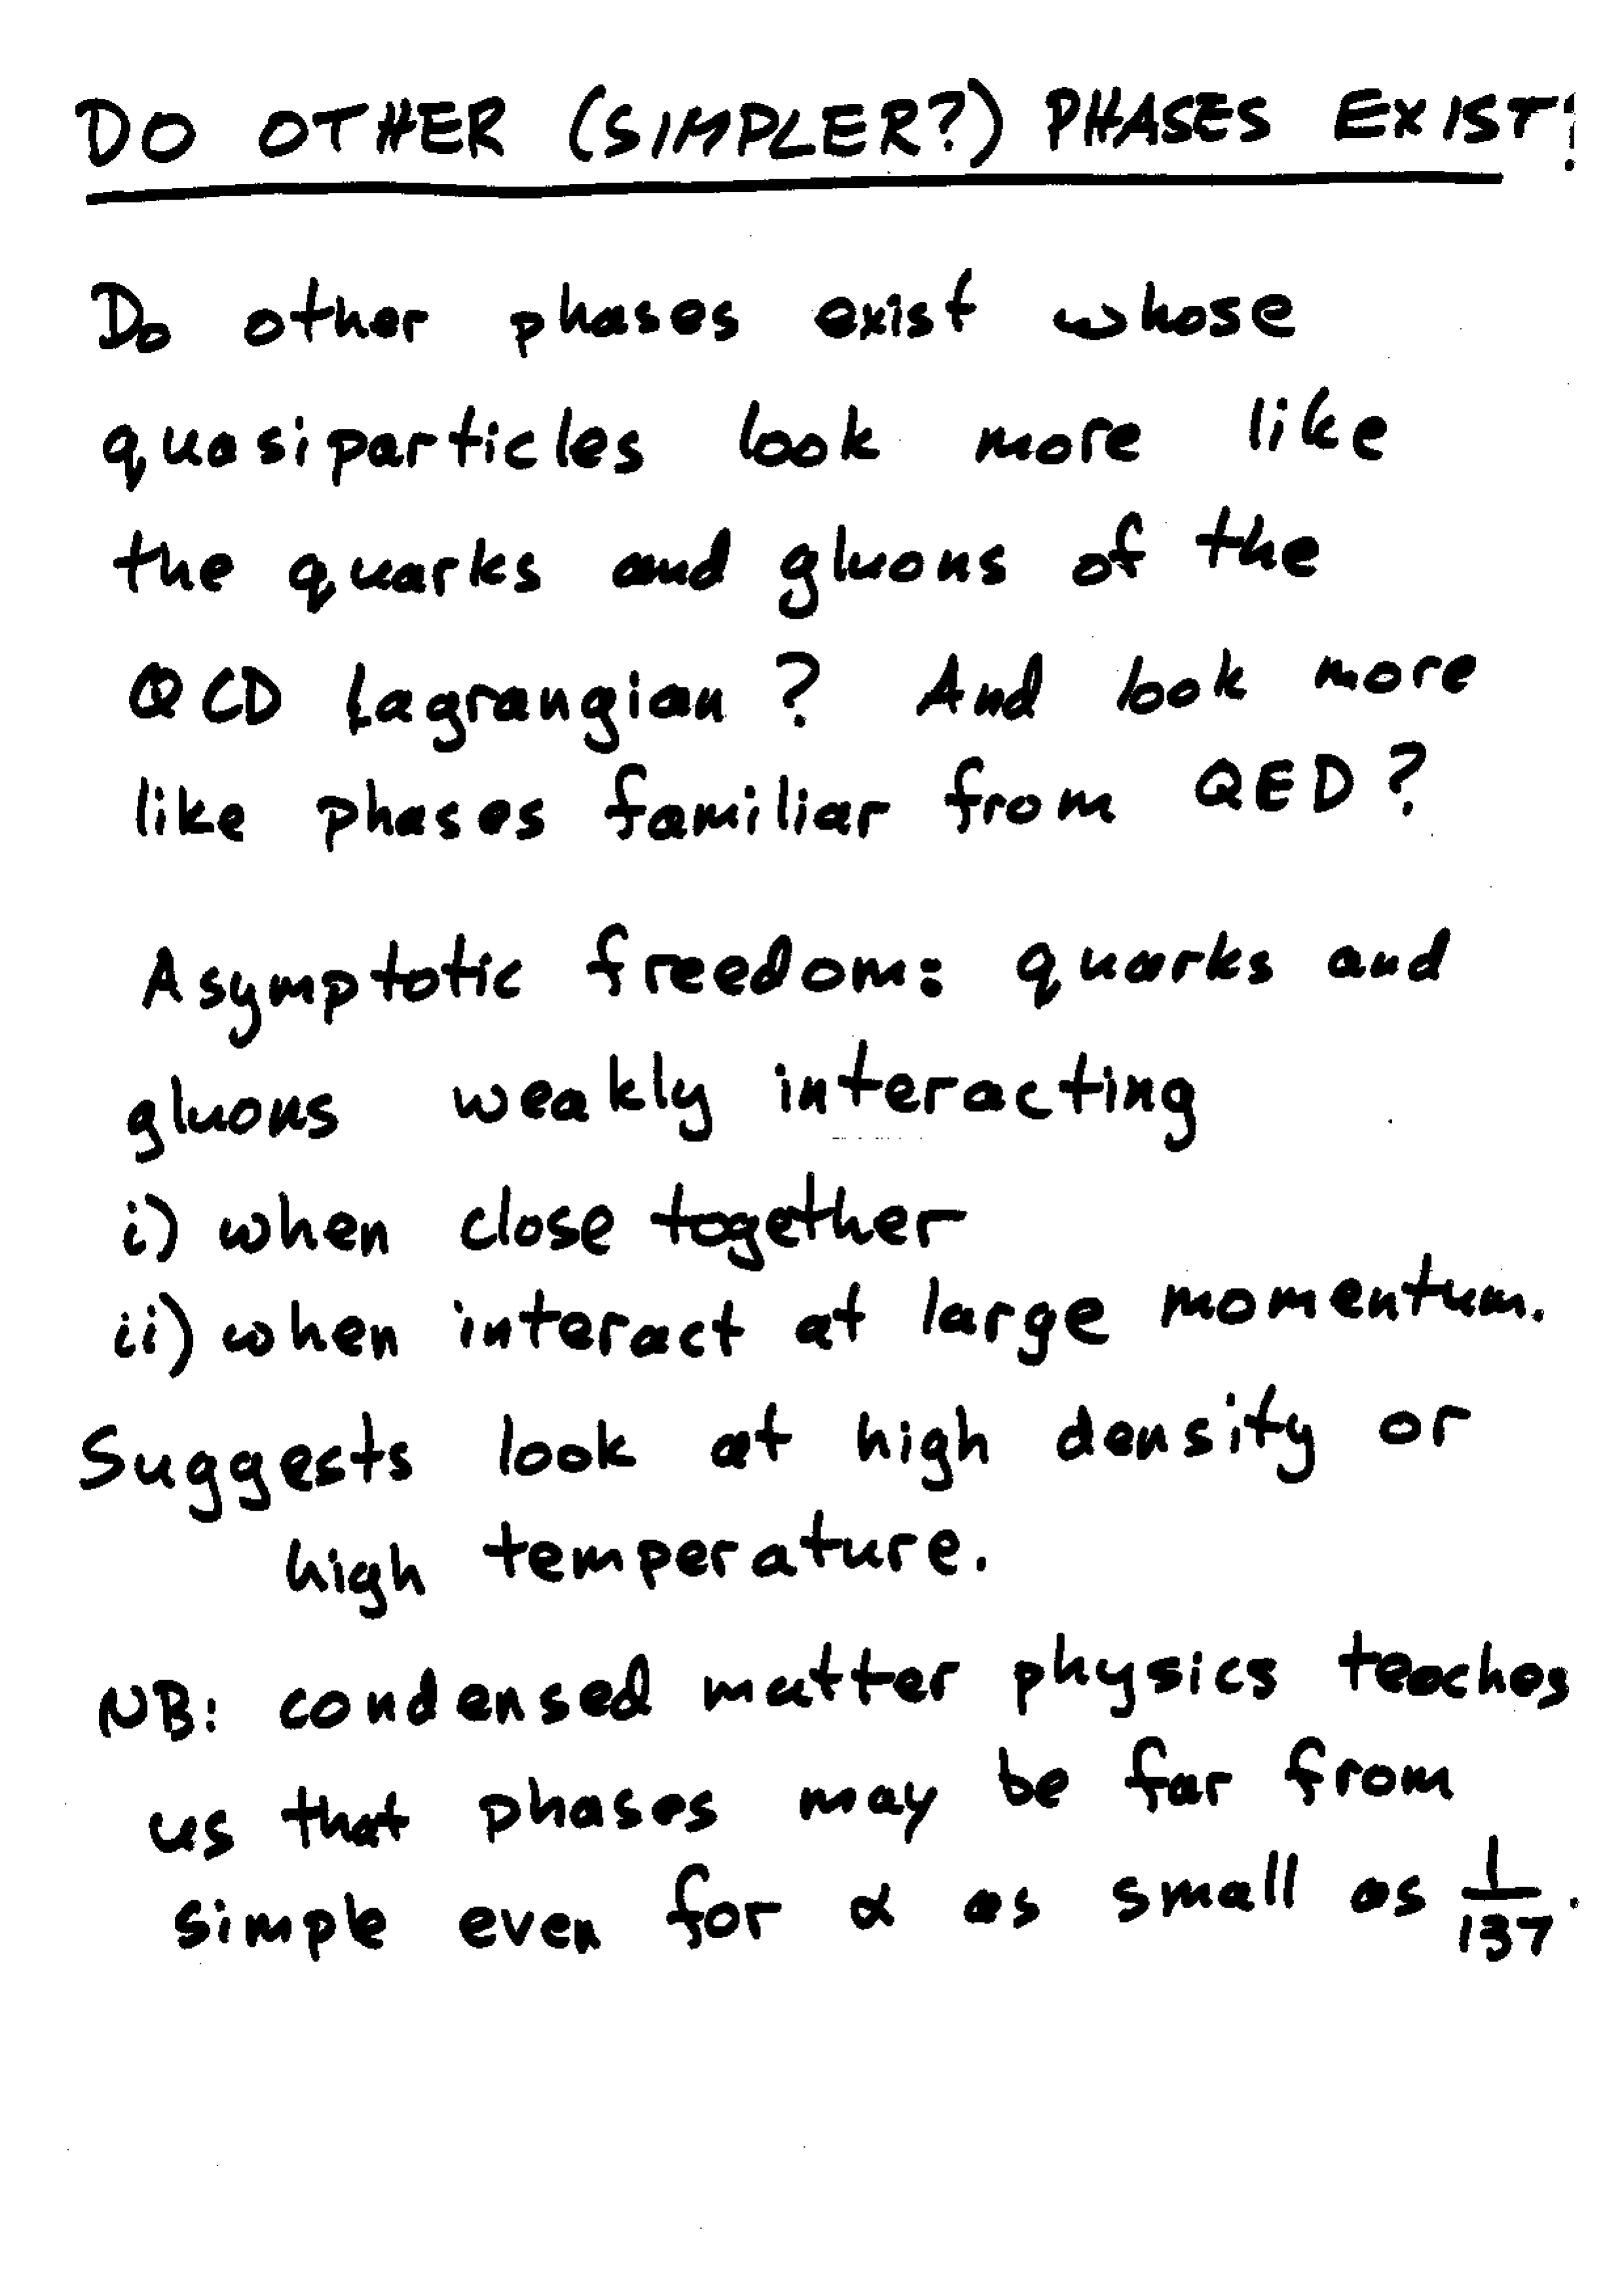 DO OTHER (SIMPLER?) PHASES EXIST?
Do other phases exist whose
quasiparticles look more like
the quarks and gluons of the
QCD Lagrangian? And look more
like phases familiar from QED?
Asymptotic freedom: quarks and
gluons weakly interacting
i) when close together
ii) when interact at large momentum.
Suggests look at high density or
high temperature.
NB: condensed matter physics teaches
us that phases may be far from
simple even for α as small as 1/137.